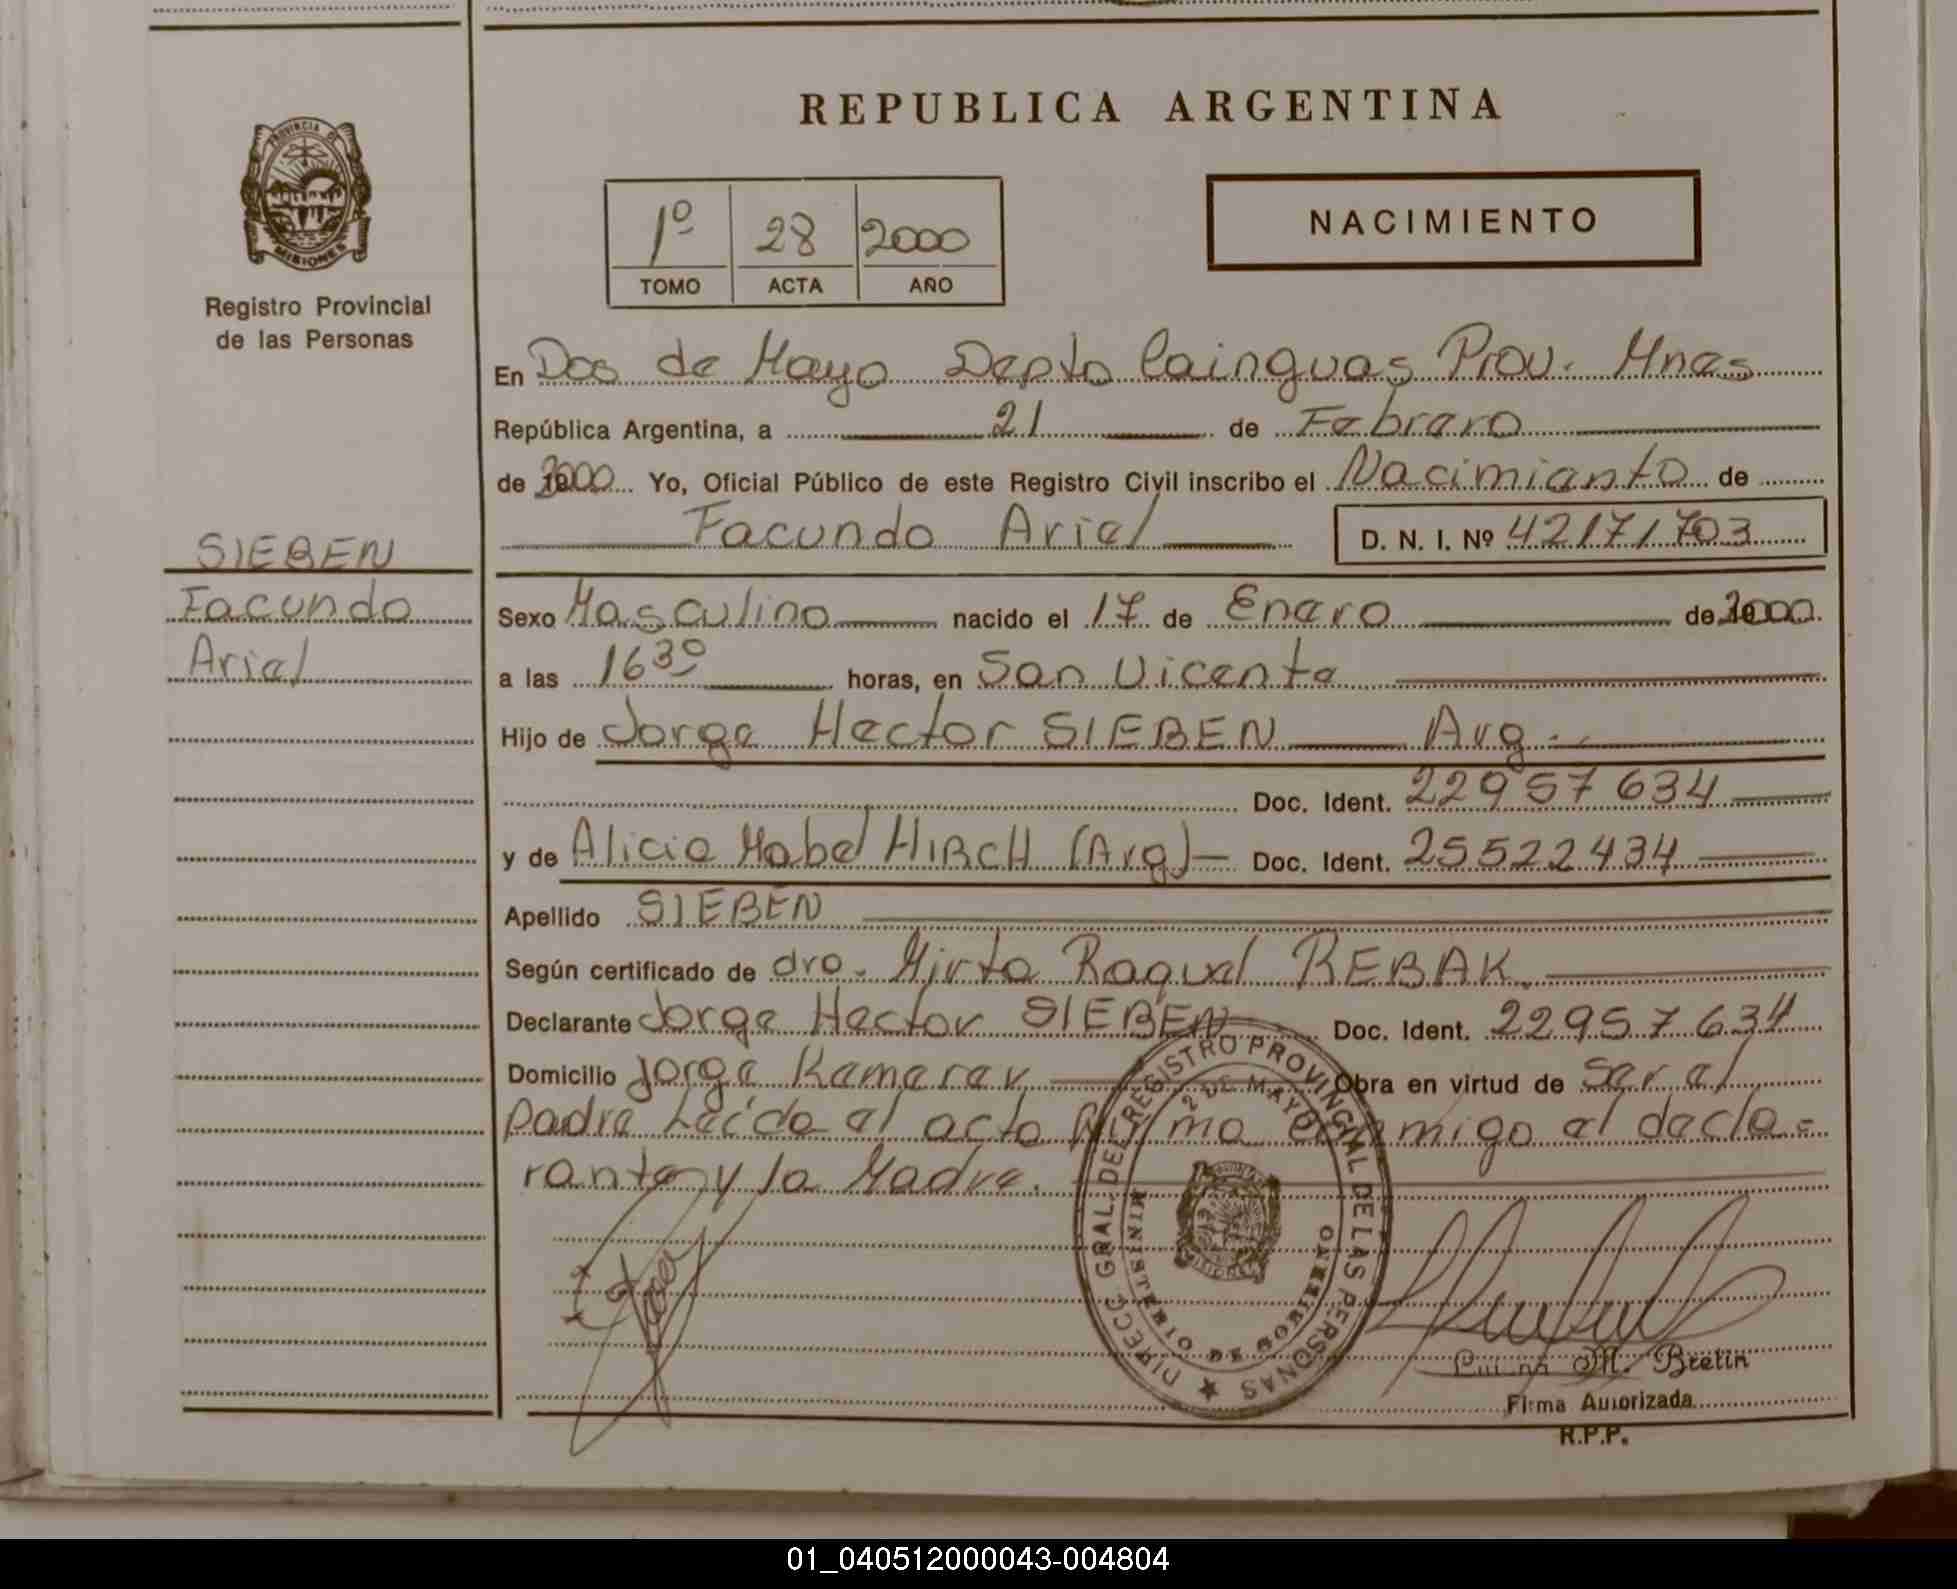 REPUBLICA ARGENTINA
PROVINCIA DE
MISIONES
Registro Provincial
de las Personas
1º 28 2000
TOMO ACTA AÑO
NACIMIENTO
En Dos de Mayo Depto Cainguas Prov. Mnes
República Argentina, a 21 de Febrero
de 2000 Yo, Oficial Público de este Registro Civil inscribo el Nacimiento de
Facundo Ariel D. N. I. Nº 42171703
SIEBEN
Facundo
Ariel
Sexo Masculino nacido el 17 de Enero de 2000
a las 16 30 horas, en San Vicente
Hijo de Jorge Hector SIEBEN Arg.
Doc. Ident. 22957634
y de Alicia Mabel HIRCH (Arg) Doc. Ident. 25522434
Apellido SIEBEN
Según certificado de dra. Mirta Raquel REBAK
Declarante Jorge Hector SIEBEN Doc. Ident. 22957634
Domicilio Jorge Kamerer Obra en virtud de Ser el
padre Leída el acta firma conmigo el decla=
rante y la Madre.
DIREC GRAL. DEL REGISTRO PROVINCIAL DE LAS PERSONAS
2 DE MAYO
MINISTERIO DE GOBIERNO
M. Bretin
Firma Autorizada
R.P.P.
01_040512000043-004804